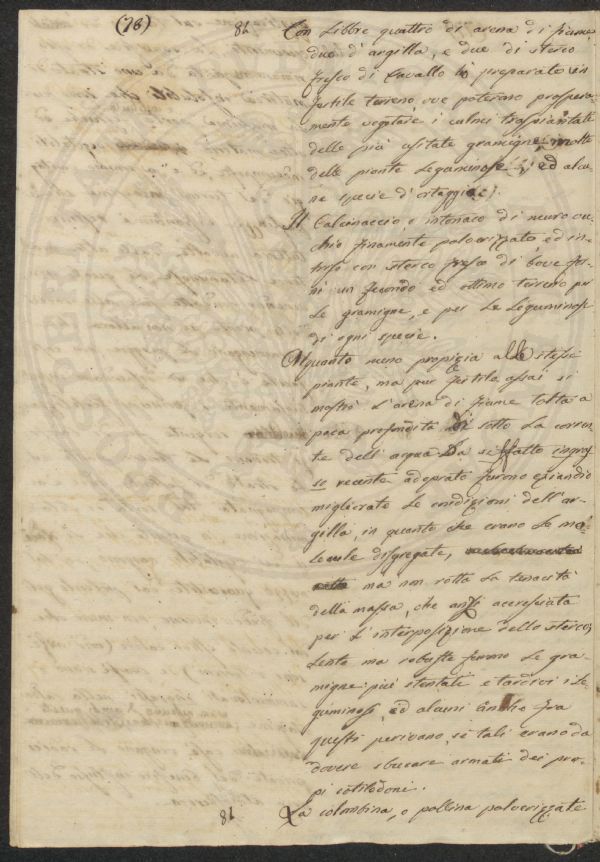 (78)
81
Con Libbre quattro di arena di fiume
due d'argilla, e due di sterco
fresco di Cavallo ò preparato un
fertile terreno, ove poterono prospera-
mente vegetare i culmi trapiantati
delle più usitate gramigne, molte
delle piante Leguminose, ed alcu-
ne specie d'ortaggi.
Il Calcinaccio, o intonaco di muro vec-
chio finamente polverizzato ed in-
triso con sterco fresco di bove for-
nì un fecondo ed ottimo terreno per
Le gramigne, e per Le Leguminose
di ogni specie.
Alquanto meno propizia alle stesse
piante, ma pur fertile assai si
mostrò L'arena di fiume tolta a
poca profondità di sotto La corren-
te dell'acqua. Da siffatto ingras-
so recente adoprato furono eziandio
migliorate Le condizioni dell'ar-
gilla, in quanto che erano Le mo-
lecule disgregate,
ma non rotta La tenacità
della massa, che anzi accresciuta
per L'interposizione dello sterco;
Lente ma robuste furono Le gra-
migne: più stentati e tardivi i Le-
guminosi, ed alcuni anche fra
questi perivano, se tali erano da
dovere sbucare armati dei pro-
pi cotiledoni.
La colombina, o pollina polverizzata
81